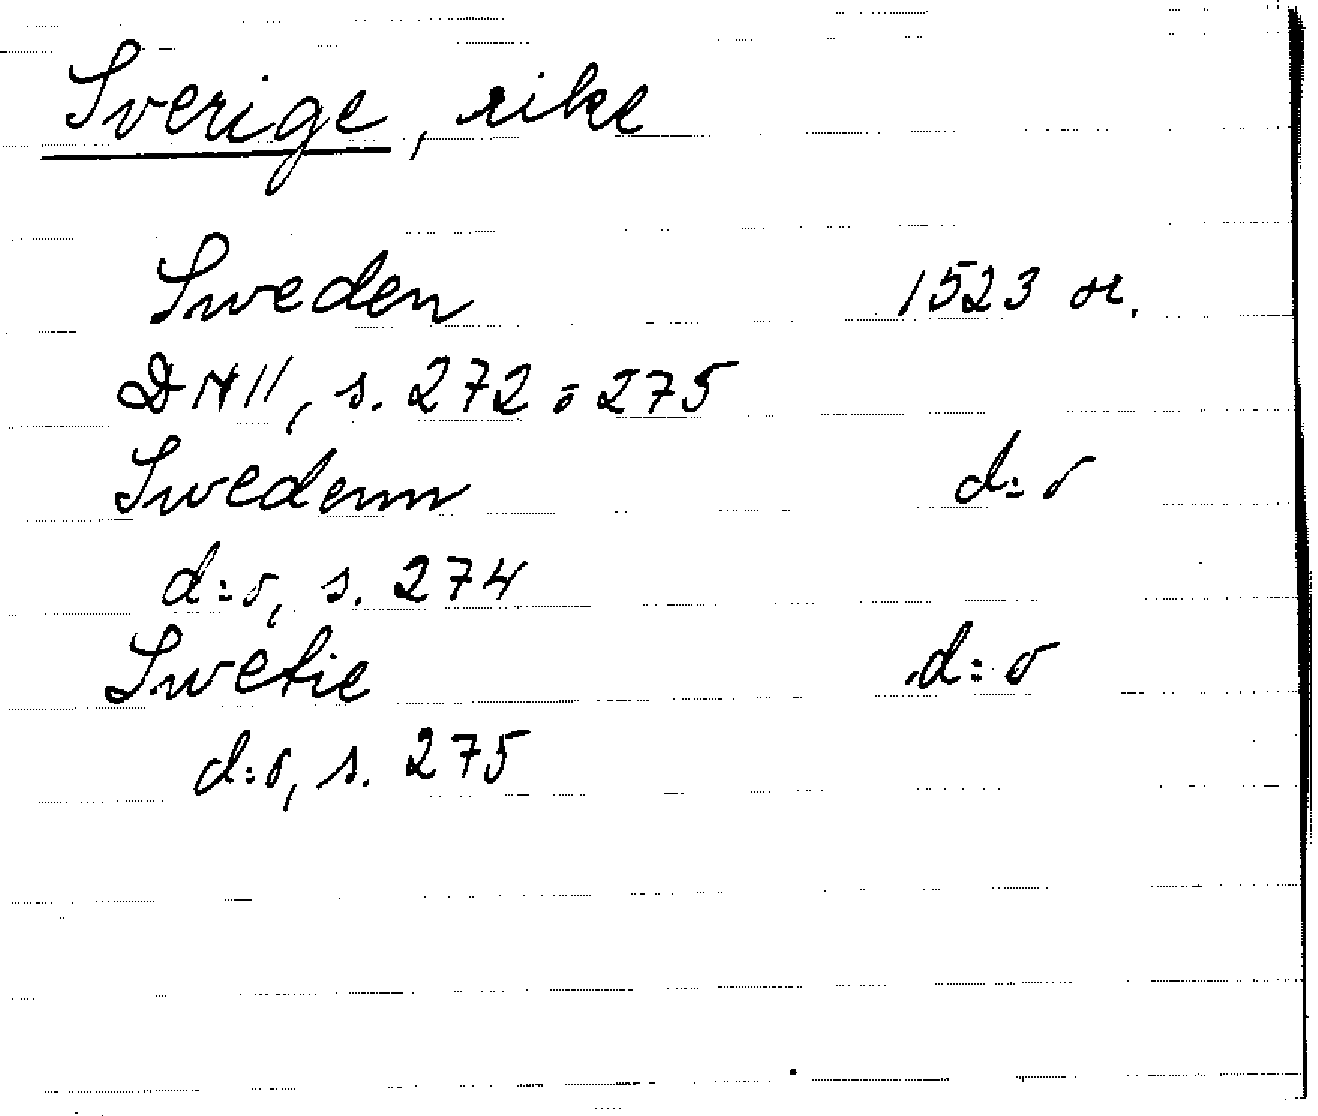 Sverige, rike
Sweden 1523 or.
DN 11, s. 272 o 275
Swedenn d:o
d:o, s. 274
Swetie d:o
d:o, s. 275